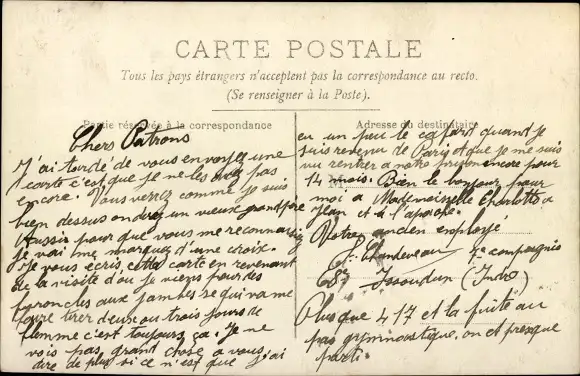 CARTE POSTALE
Tous les pays étrangers n'acceptent pas la correspondance au recto.
(Se renseigner à la Poste).
Partie réservée à la correspondance
Adresse du destinataire
Chers Patrons
J'ai tardé de vous envoyez une
carte c'est que je ne les avez pas
encore. Vous verrez comme je suis
bien dessus on direz un vieux grand père
Aussi pour que vous me reconnaissiez
je vai me marquez d'une croix.
Je vous ecris cette carte en revenant
de la visite d'ou je viens pour des
foroncles aux jambes se qui va me
faire tirer deux ou trois jours de
flemme c'est toujours ça. Je ne
vois pas grand chose a vous
dire de plus si ce n'est que j'ai
eu un peu le cafard quand je
suis revenu de Paris et que je me suis
vu rentrer a notre prison encore pour
14 mois. Bien le bonjour pour
moi a Mademoiselle Charlotte a
Jean et à
Votre ancien employé
Chandeveau 4e compagnie
Issoudun (Indre)
Plus que 417 et la fuite au
pas gymnastique. on et presque
parti.